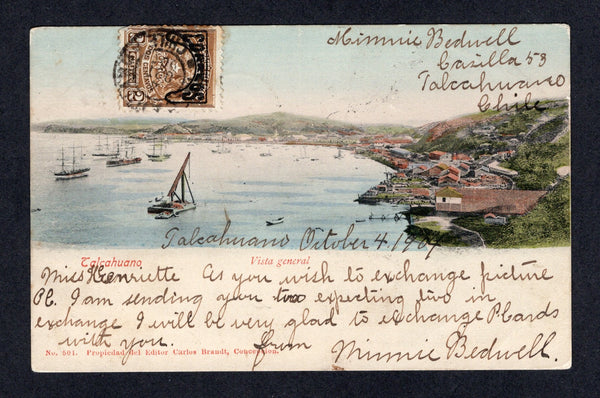 Minnie Bedwell
Cazilla 53
Talcahuano
Chile
Talcahuano October 4. 1904
Talcahuano
Vista general
Miss Henriette As you wish to exchange picture
PC. I am sending you two expecting two in
exchange I will be very glad to exchange P.Cards
with you. from Minnie Bedwell.
No. 501. Propiedad del Editor Carlos Brandt, Concepcion.